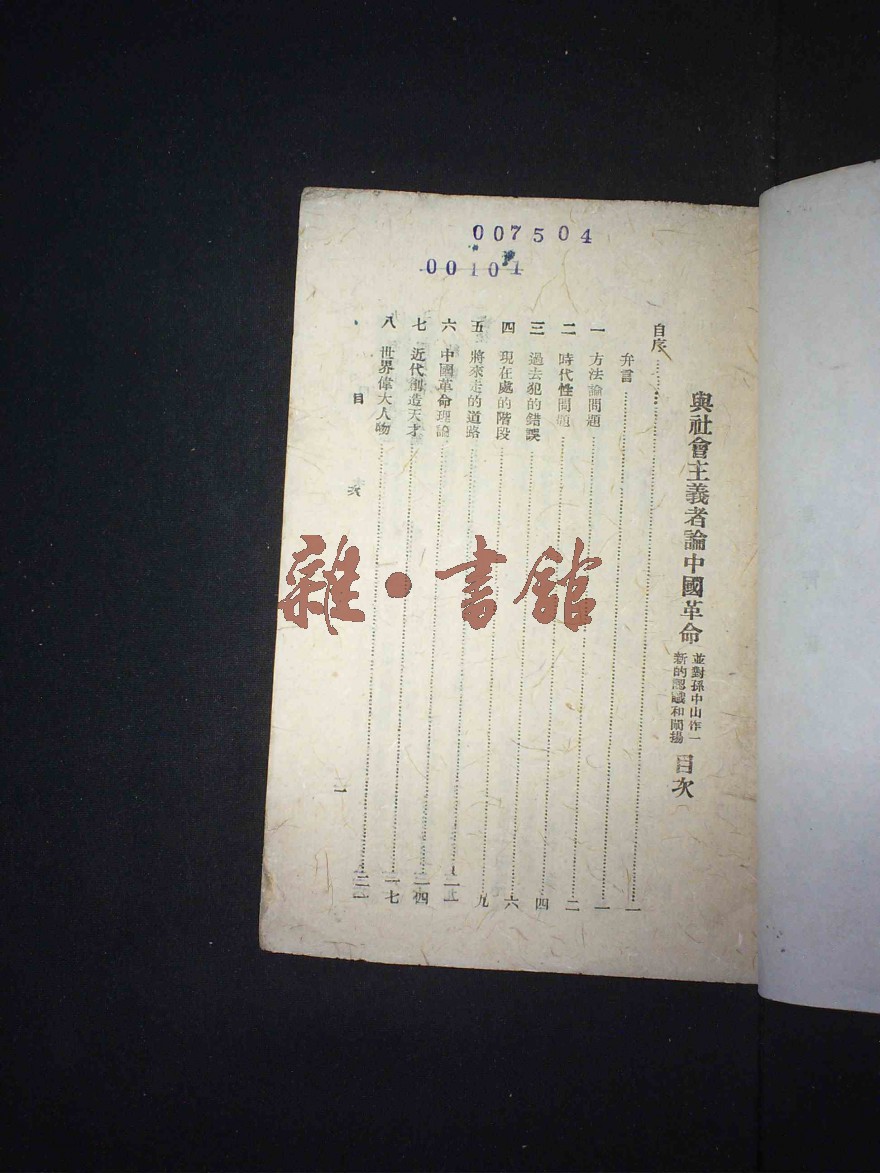 與社會主義者論中國革命 並對孫中山作一新的認識和闡揚 目次
自序……一
弁言……一
一 方法論問題……二
二 時代性問題……四
三 過去犯的錯誤……六
四 現在處的階段……九
五 將來走的道路……
六 中國革命理論……一四
七 近代創造天才……一七
八 世界偉大人物……二一
目次
一
007504
00101
雜·書館